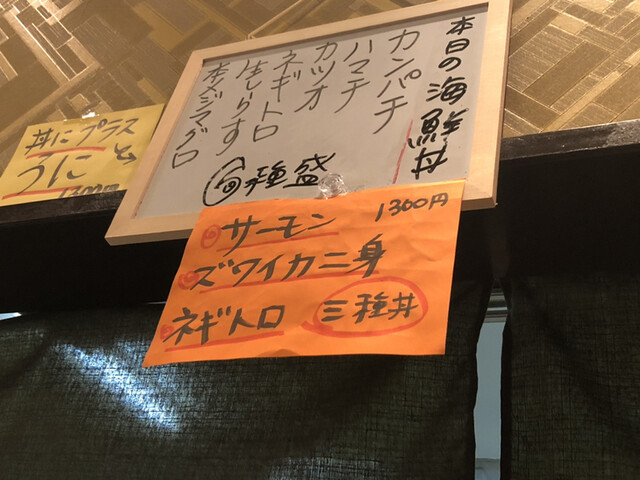 本日の海鮮丼
カンパチ
ハマチ
カツオ
ネギートロ
生しらす
本メジマグロ
種盛
サーモン
1300円
ズワイカニ身
ネギトロ
三種丼
丼にプラス
うにと
1300円